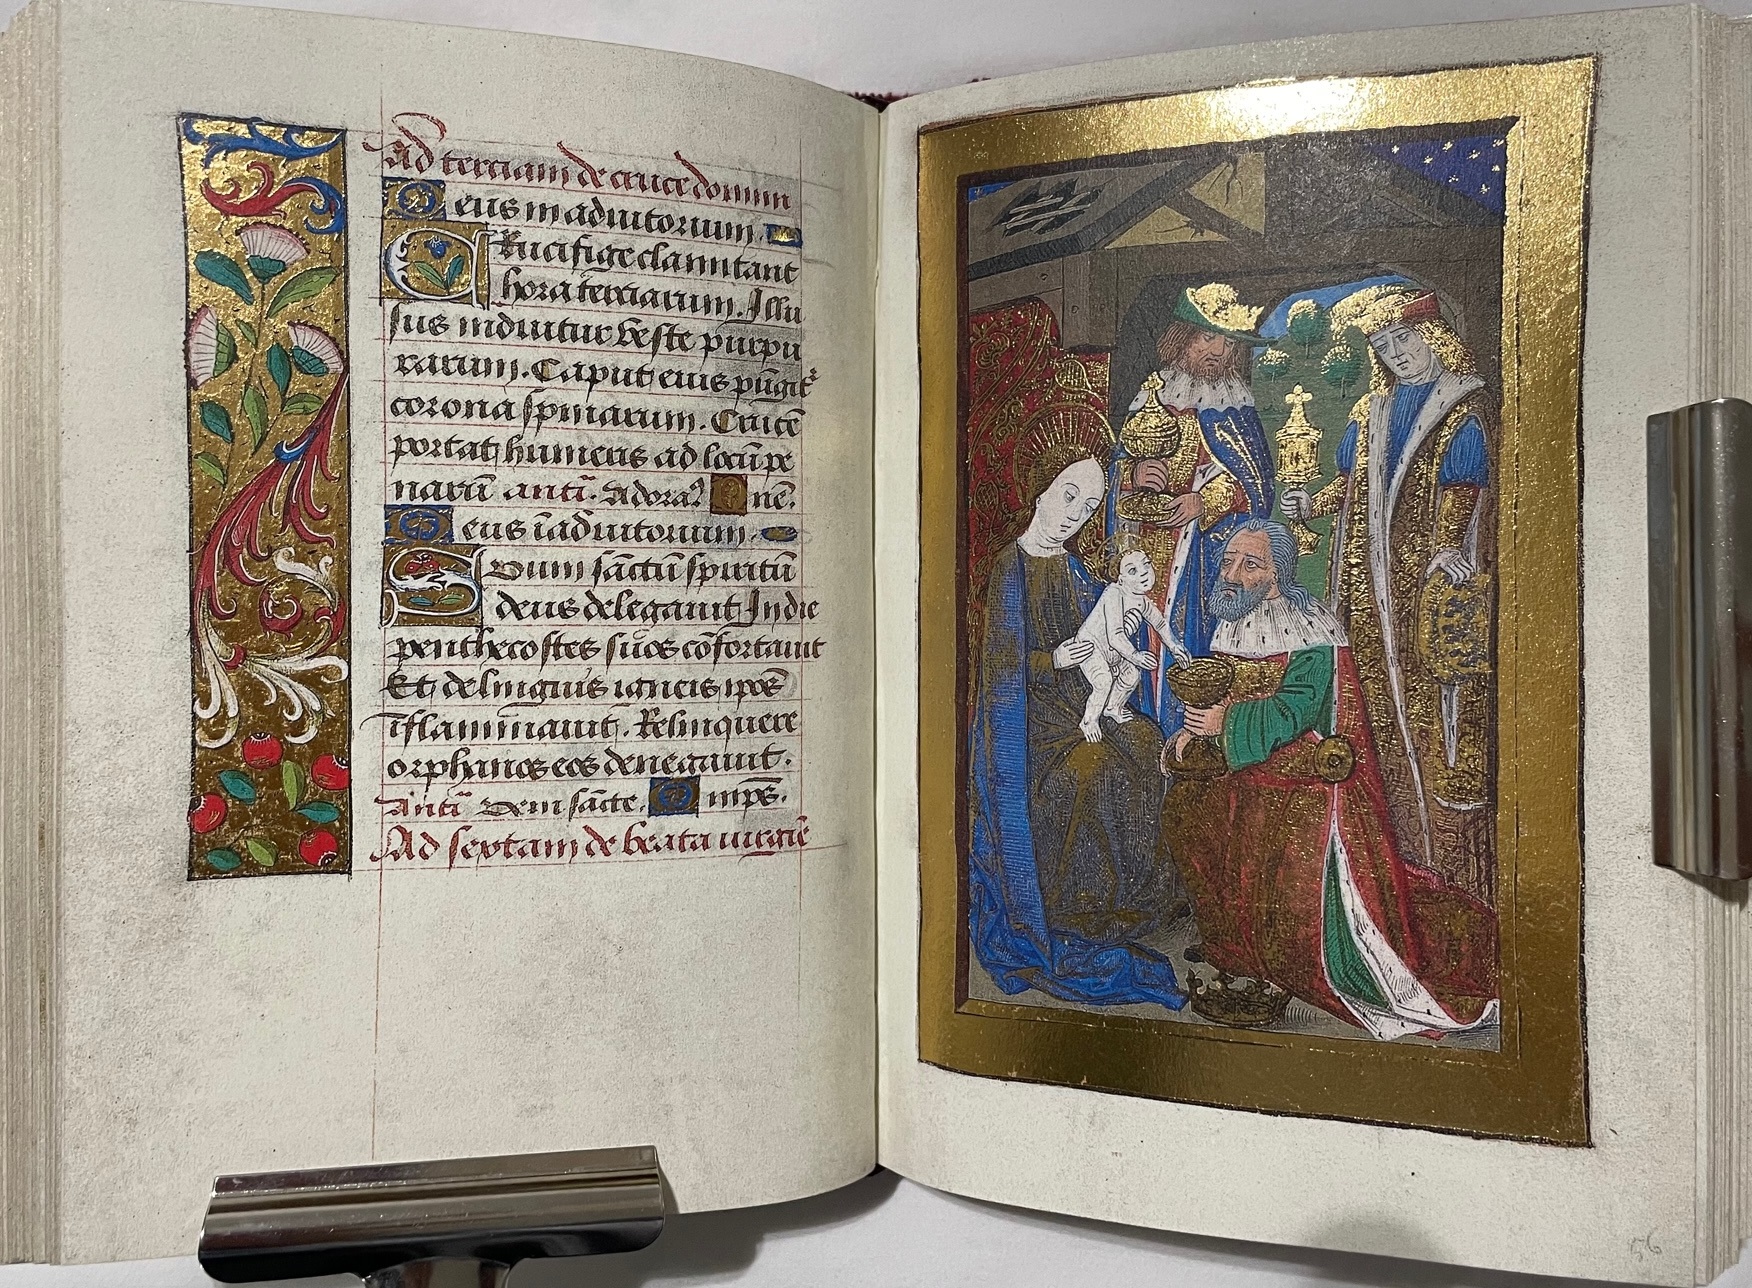 Ad terciam de cruce domini
Deus in adiutorium.
Crucifige clamitant
hora terciarum. Illu
sus induitur veste purpu
rarum. Caput eius pūgit᷑
corona spinarum. Crucē
portat humeris ad locū pe
narū antā. Adoraꝰ One.
Deus ī adiutorium.
Suum sāctū spiritū
deus delegauit In die
penthecostes suos cōfortauit
Et de linguis igneis ipos
īflammauit. Relinquere
orphanos eos denegauit.
Antā Veni sācte. Omps.
Ad sextam de beata virgīe
56